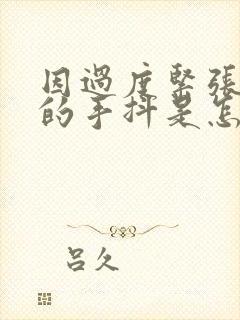 因過度緊張
的手抖是怎
吕久